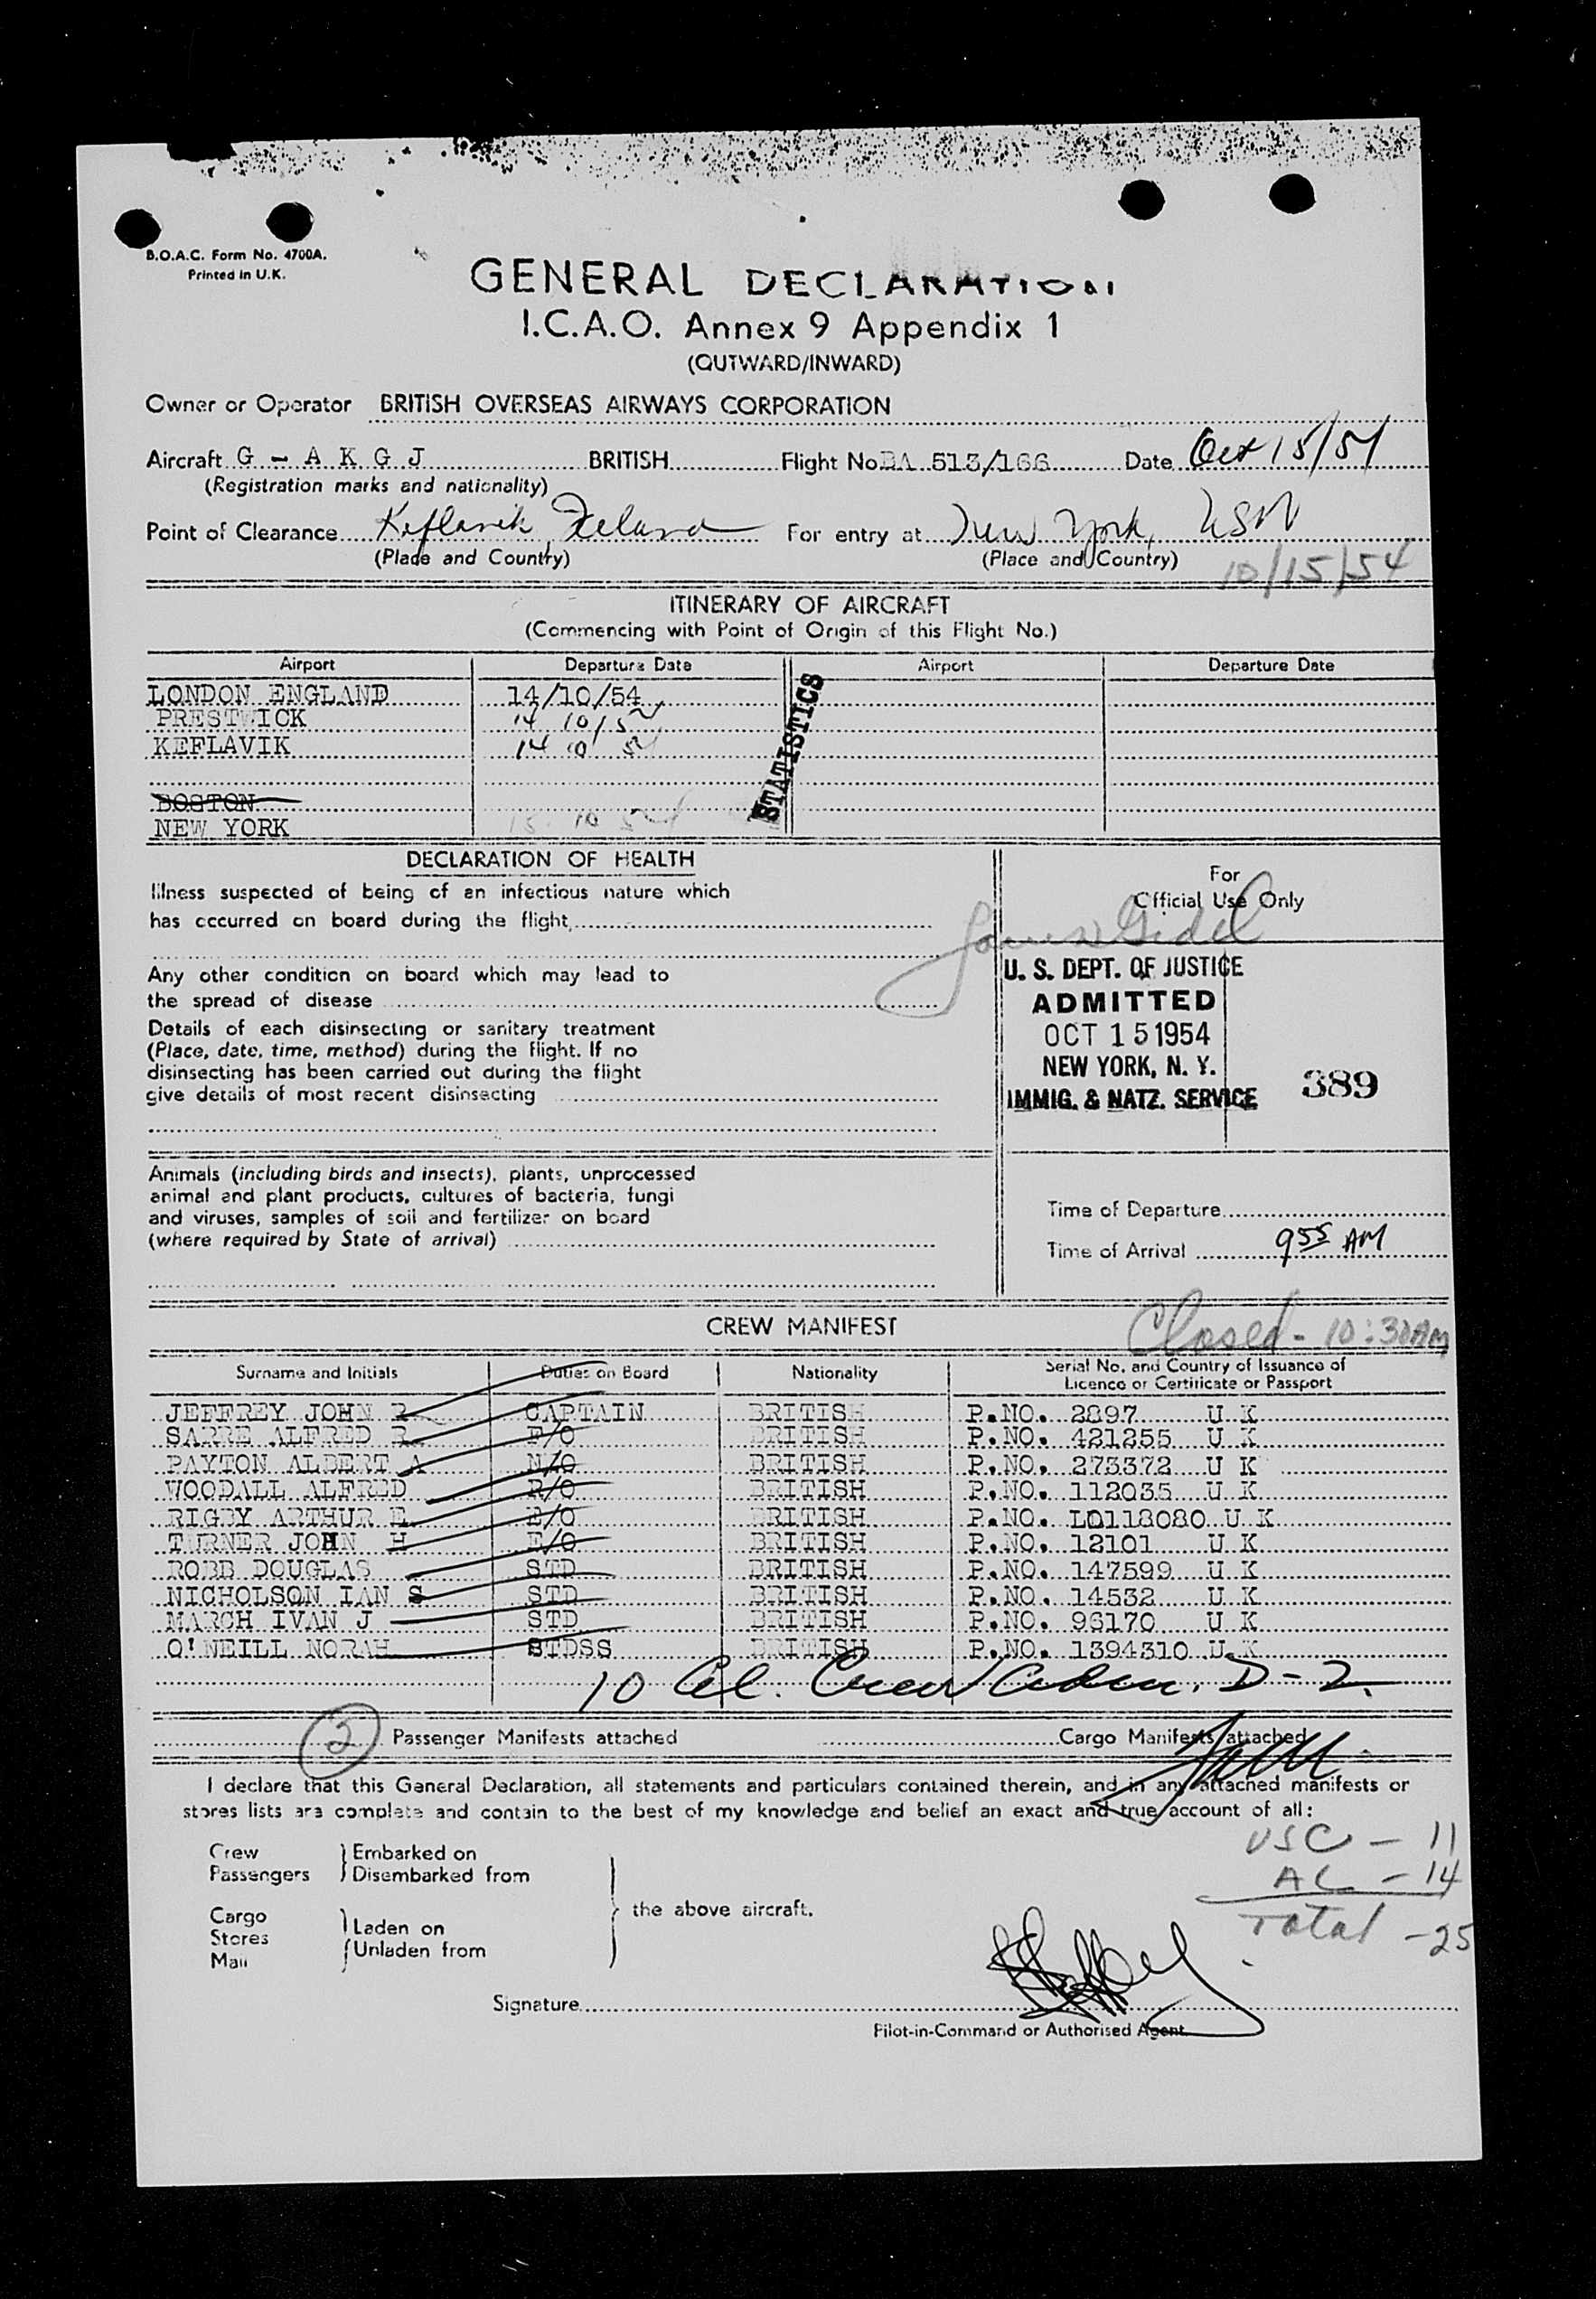 B.O.A.C. Form No. 4700A.
Printed in U.K.
GENERAL DECLARATION
I.C.A.O. Annex 9 Appendix 1
(OUTWARD/INWARD)
Owner or Operator BRITISH OVERSEAS AIRWAYS CORPORATION
Aircraft G - A K G J BRITISH Flight No. BA 513/166 Date Oct 15/54
(Registration marks and nationality)
Point of Clearance Keflavik Iceland For entry at New York, USA
(Place and Country) (Place and Country)
10/15/54
ITINERARY OF AIRCRAFT
(Commencing with Point of Origin of this Flight No.)
Airport Departure Date Airport Departure Date
LONDON ENGLAND 14/10/54
PRESTWICK 14 10/54
KEFLAVIK 14 10 54
STATISTICS
BOSTON
NEW YORK 15 10 54
DECLARATION OF HEALTH
Illness suspected of being of an infectious nature which
has occurred on board during the flight,
Any other condition on board which may lead to
the spread of disease
Details of each disinsecting or sanitary treatment
(Place, date, time, method) during the flight. If no
disinsecting has been carried out during the flight
give details of most recent disinsecting
For
Official Use Only
U. S. DEPT. OF JUSTICE
ADMITTED
OCT 15 1954
NEW YORK, N. Y.
IMMIG. & NATZ. SERVICE
389
Animals (including birds and insects), plants, unprocessed
animal and plant products, cultures of bacteria, fungi
and viruses, samples of soil and fertilizer on board
(where required by State of arrival)
Time of Departure
Time of Arrival 9 55 AM
Closed - 10:30AM
CREW MANIFEST
Surname and Initials Duties on Board Nationality Serial No. and Country of Issuance of
Licence or Certificate or Passport
JEFFREY JOHN R CAPTAIN BRITISH P.NO. 2897 U K
SARRE ALFRED R F/O BRITISH P.NO. 421255 U K
PAYTON ALBERT A N/O BRITISH P.NO. 273372 U K
WOODALL ALFRED R/O BRITISH P.NO. 112035 U K
RIGBY ARTHUR E E/O BRITISH P.NO. LO118080 U K
TURNER JOHN H E/O BRITISH P.NO. 12101 U K
ROBB DOUGLAS STD BRITISH P.NO. 147599 U K
NICHOLSON IAN S STD BRITISH P.NO. 14532 U K
MARCH IVAN J STD BRITISH P.NO. 96170 U K
O'NEILL NORAH STDSS BRITISH P.NO. 1394310 U K
10 Al. Crew Adm. D-2.
2 Passenger Manifests attached Cargo Manifests attached
I declare that this General Declaration, all statements and particulars contained therein, and in any attached manifests or
stores lists are complete and contain to the best of my knowledge and belief an exact and true account of all:
USC - 11
AL - 14
Total - 25
Crew
Passengers
Embarked on
Disembarked from
Cargo
Stores
Mail
Laden on
Unladen from
the above aircraft.
Signature
Pilot-in-Command or Authorised Agent